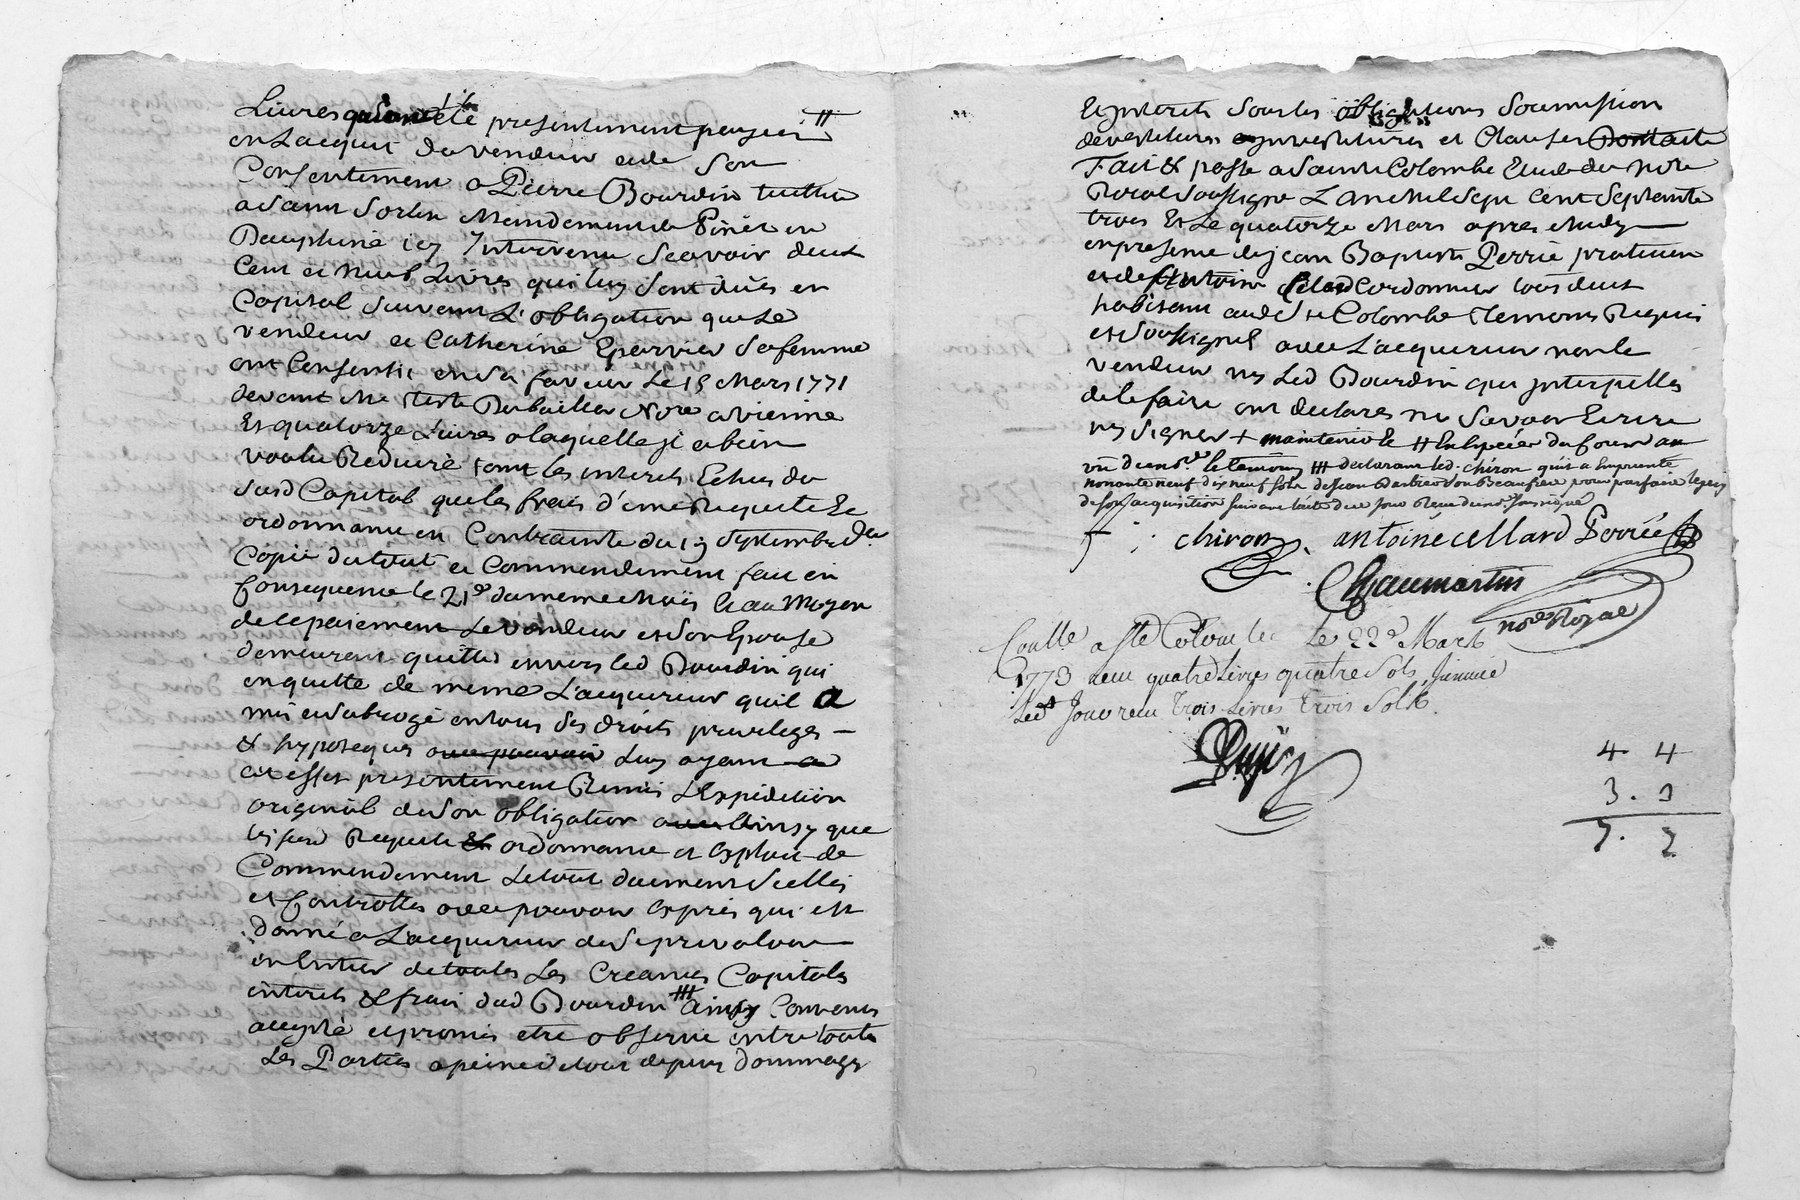 Livres qui ont eté presentement payeés //
en Lacquit du vendeur et de Son
Consentement a Pierre Bourdin
a Saint Sorlin Mandement de Pinet en
Dauphiné icy Intervenu Scavoir deux
Cent et neuf Livres qui luy sont dües en
Capital Suivant L'obligation que Le
vendeur et Catherine Eparvier Sa femme
ont Consentie en Sa faveur Le 15 Mars 1771
devant Me Nore a vienne
Et quatorze Livres a laquelle il a bien
voulu Reduire tant les interets Echus du
Susd Capital que les frais d'une Requete Et
ordonnance en Contrainte du 19 Septembre der
Copie du tout et Commendement fait en
Consequence le 21e du meme Mois Et au Moyen
de ce paiement Le vendeur et Son Epouse
demeurent quittes envers led Bourdin qui
en quitte de meme L'acquereur qu'il a
mis et Subrogé en tous Ses droits privileges –
& hypoteques avec pouvoir Luy ayant a
cet effet presentement Remis L'Expedition
original de Son obligation ainsy que
les susd Requete & ordonnance et Exploit de
Commendement Le tout duement Scellés
et Controllés avec pouvoir Exprés qui est
donné a L'acquereur de Se prevaloir
en Entier de toutes Les Creances Capitales
interets & frais dud Bourdin /// ainsy Convenu
accepté et promis etre observé entre toutes
Les Parties a peine de tous depens dommages
Et interets Sous les obligations Soumission
devestitures investitures et Clauses
Fait & passé a Sainte Colombe Etude du Nore
Roial Soussigné L'an Mil Sept Cent Septante
trois Et Le quatorze Mars apres Midy
en presence de Jean Baptiste Perrié praticien
et de Antoine Cellard Cordonnier tous deux
habitant aud Ste Colombe temoins Requis
et Soussignés avec L'acquereur non le
vendeur ny Led Bourdin qui interpellés
de le faire ont declarés ne Savoir Ecrire
ny Signer + maintenir & // En Especes du Cours au
vû dud nore. & temoins /// declarant led. chiron qu'il a Emprunté
nonante neuf dix neuf sols de Jean Barbier pour parfaire le prix
de son acquisition suivant l'acte de ce jour Recu dud nore soussigné
chiron antoine cellard Perrié
Chaumartin
nore Royal
Con.lle a Ste Colombe Le 22e Mars
1773 recu quatre Livres quatre Sols, Insinué
Led. Jour recu trois Livres trois Sols.
4 4
3. 3
7. 7